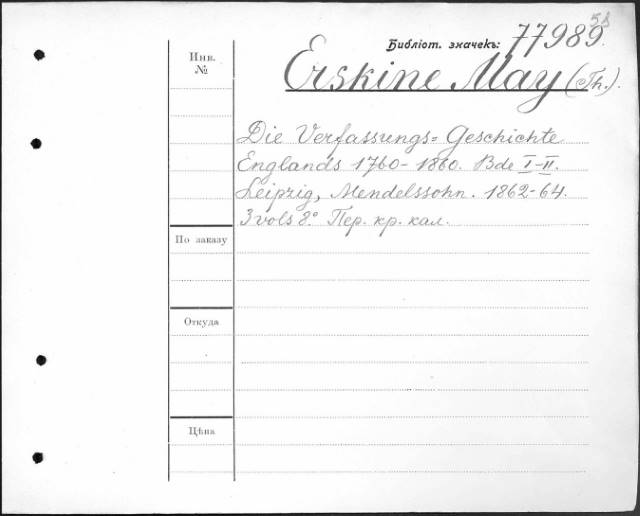 Библіот. значекъ: 77989.
Инв. №
Erskine May (Th.).
Die Verfassungs=Geschichte
Englands 1760-1860. Bde I-II.
Leipzig, Mendelssohn. 1862-64.
3 vols 8.° Пер. кр. кал.
По заказу
Откуда
Цѣна